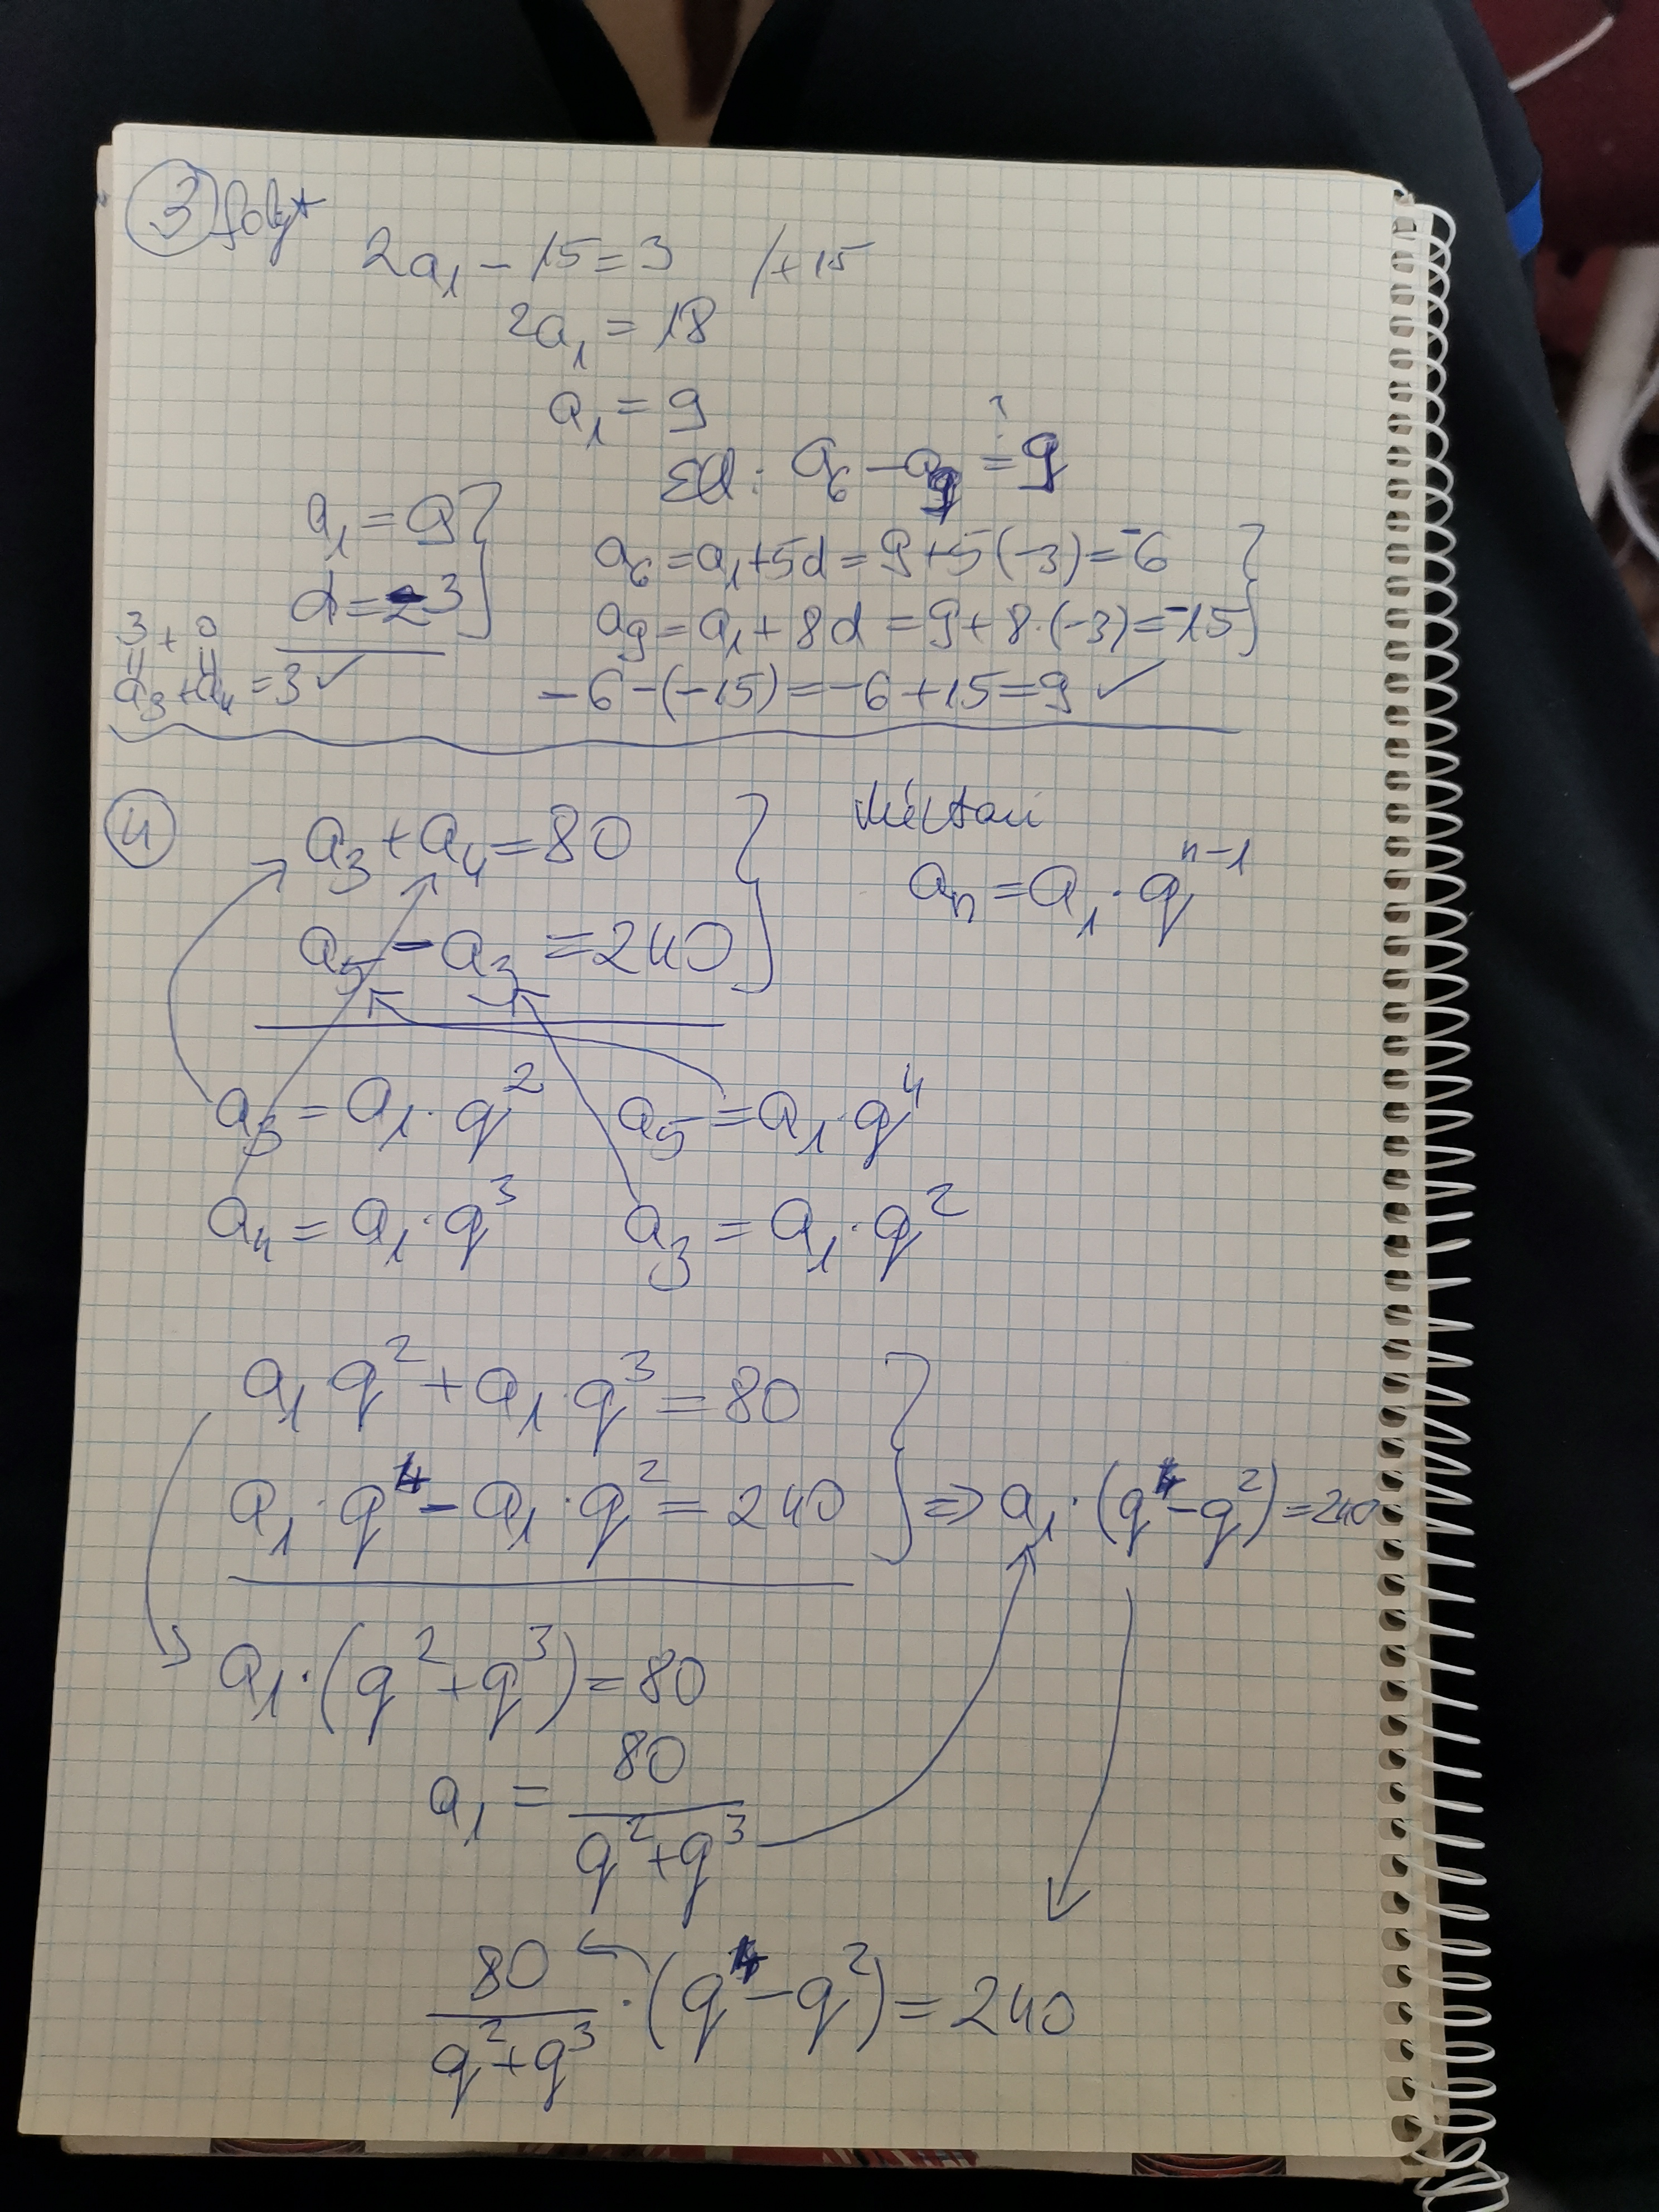 ③ folyt
2a₁ - 15 = 3 /+15
2a₁ = 18
a₁ = 9
Ell: a₆ - a₉ ≟ 9
a₁ = 9
d = -3
a₆ = a₁ + 5d = 9 + 5(-3) = -6
a₉ = a₁ + 8d = 9 + 8·(-3) = -15
3 + 0
a₃ + a₄ = 3 ✓
-6 - (-15) = -6 + 15 = 9 ✓
④
a₃ + a₄ = 80
a₅ - a₃ = 240
Mértani
aₙ = a₁ · qⁿ⁻¹
a₃ = a₁ · q² a₅ = a₁ · q⁴
a₄ = a₁ · q³ a₃ = a₁ · q²
a₁ q² + a₁ · q³ = 80
a₁ · q⁴ - a₁ · q² = 240 ⇒ a₁ · (q⁴ - q²) = 240
a₁ · (q² + q³) = 80
a₁ = 80 / (q² + q³)
80 / (q² + q³) · (q⁴ - q²) = 240